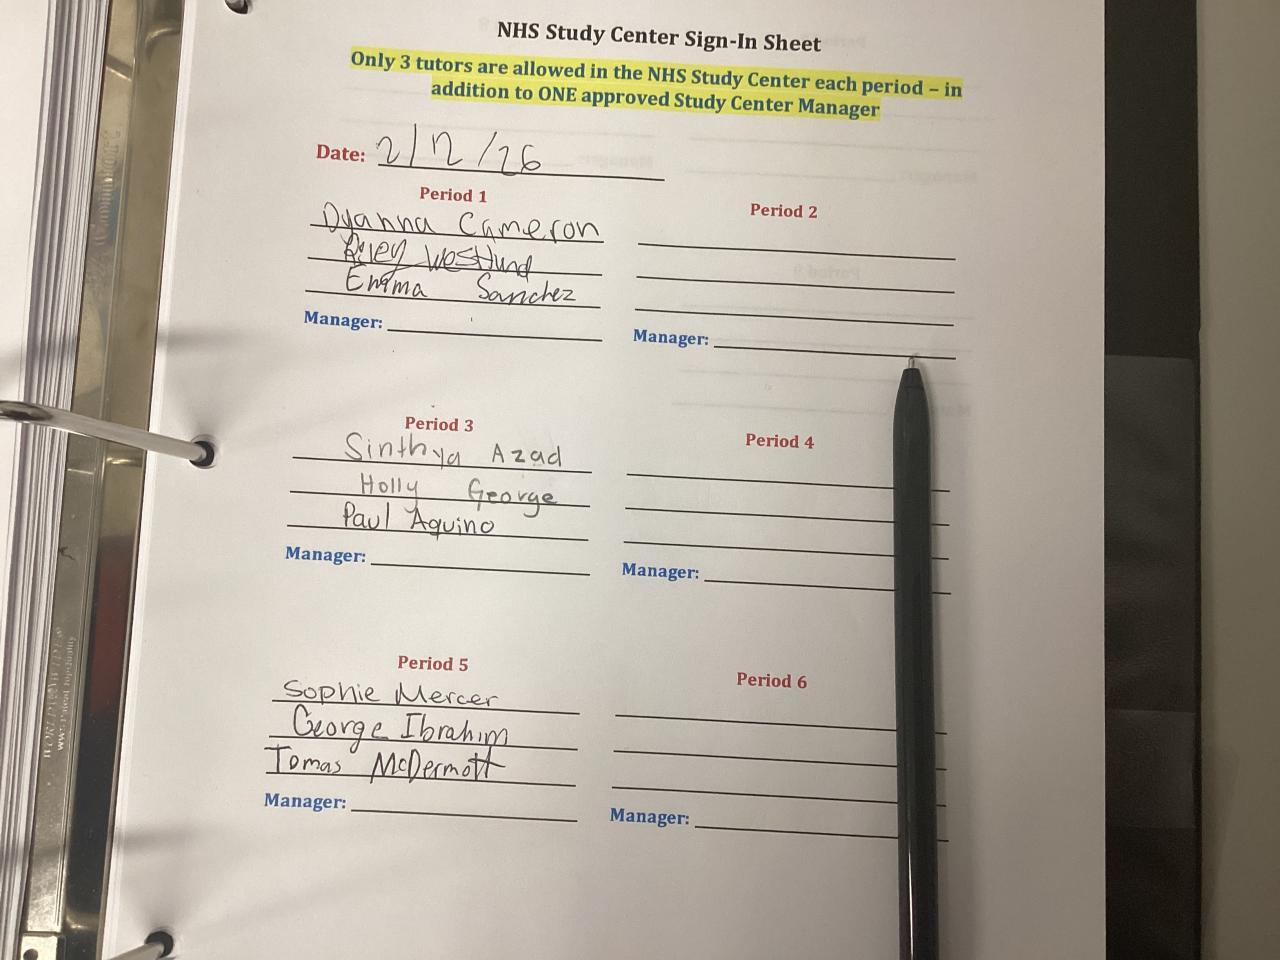 NHS Study Center Sign-In Sheet
Only 3 tutors are allowed in the NHS Study Center each period – in
addition to ONE approved Study Center Manager
Date: 2/12/26
Period 1
Dyanna Cameron
Riley Westlund
Emma Sanchez
Manager:
Period 2
Manager:
Period 3
Sinthya Azad
Holly George
Paul Aquino
Manager:
Period 4
Manager:
Period 5
Sophie Mercer
George Ibrahim
Tomas McDermott
Manager:
Period 6
Manager: